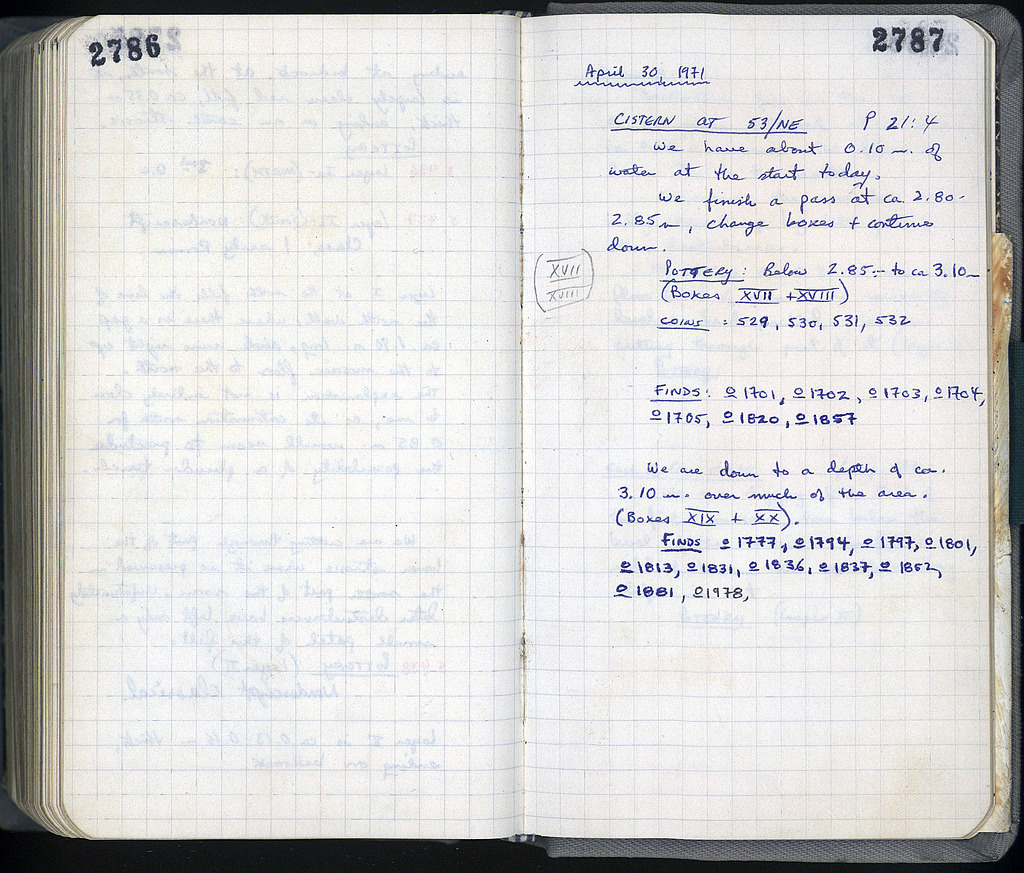 2786
2787
April 30, 1971
CISTERN AT 53/NE P 21:4
We have about 0.10 m. of
water at the start today.
We finish a pass at ca. 2.80-
2.85 m, change boxes + continue
down.
XVII
XVIII
POTTERY: Below 2.85 m. to ca 3.10 m
(Boxes XVII + XVIII)
COINS: 529, 530, 531, 532
FINDS: o 1701, o 1702, o 1703, o 1704,
o 1705, o 1820, o 1857
We are down to a depth of ca.
3.10 m. over much of the area.
(Boxes XIX + XX).
FINDS o 1777, o 1794, o 1797, o 1801,
o 1813, o 1831, o 1836, o 1837, o 1852,
o 1881, o 1978,